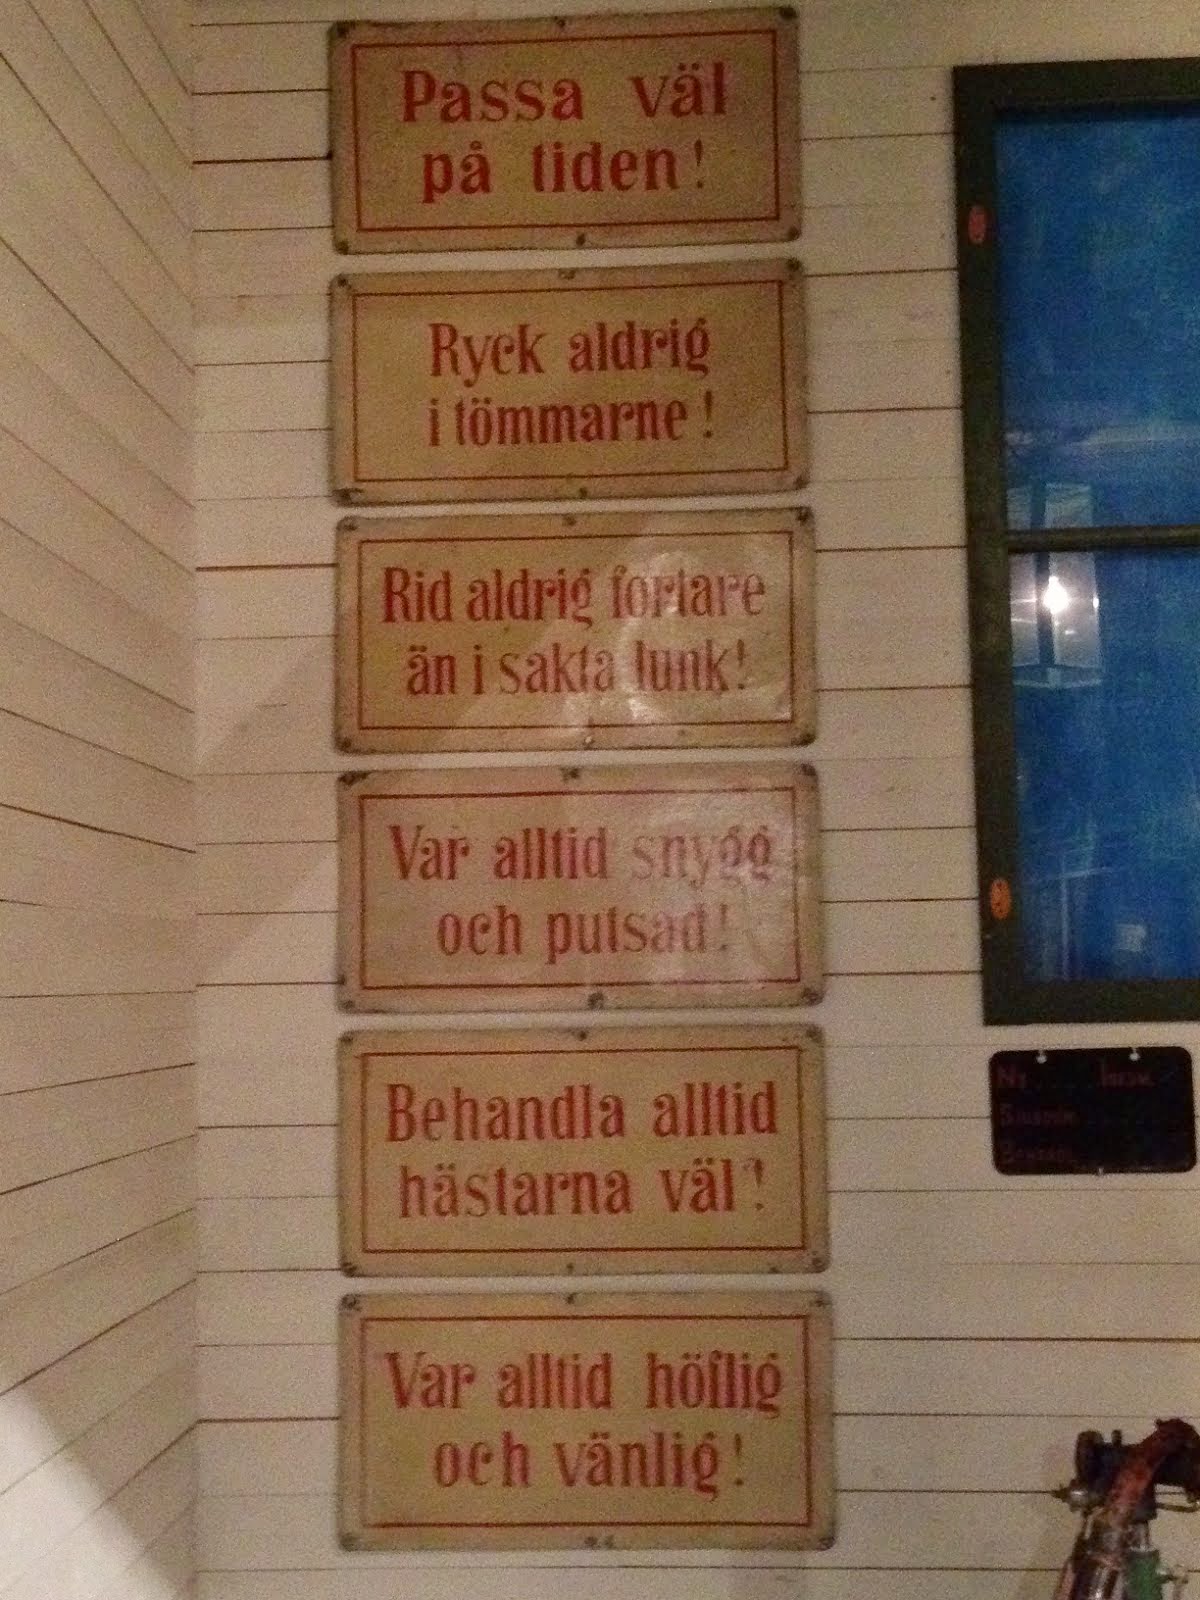 Passa väl
på tiden!
Ryck aldrig
i tömmarne!
Rid aldrig fortare
än i sakta lunk!
Var alltid snygg
och putsad!
Behandla alltid
hästarna väl!
Var alltid höflig
och vänlig!